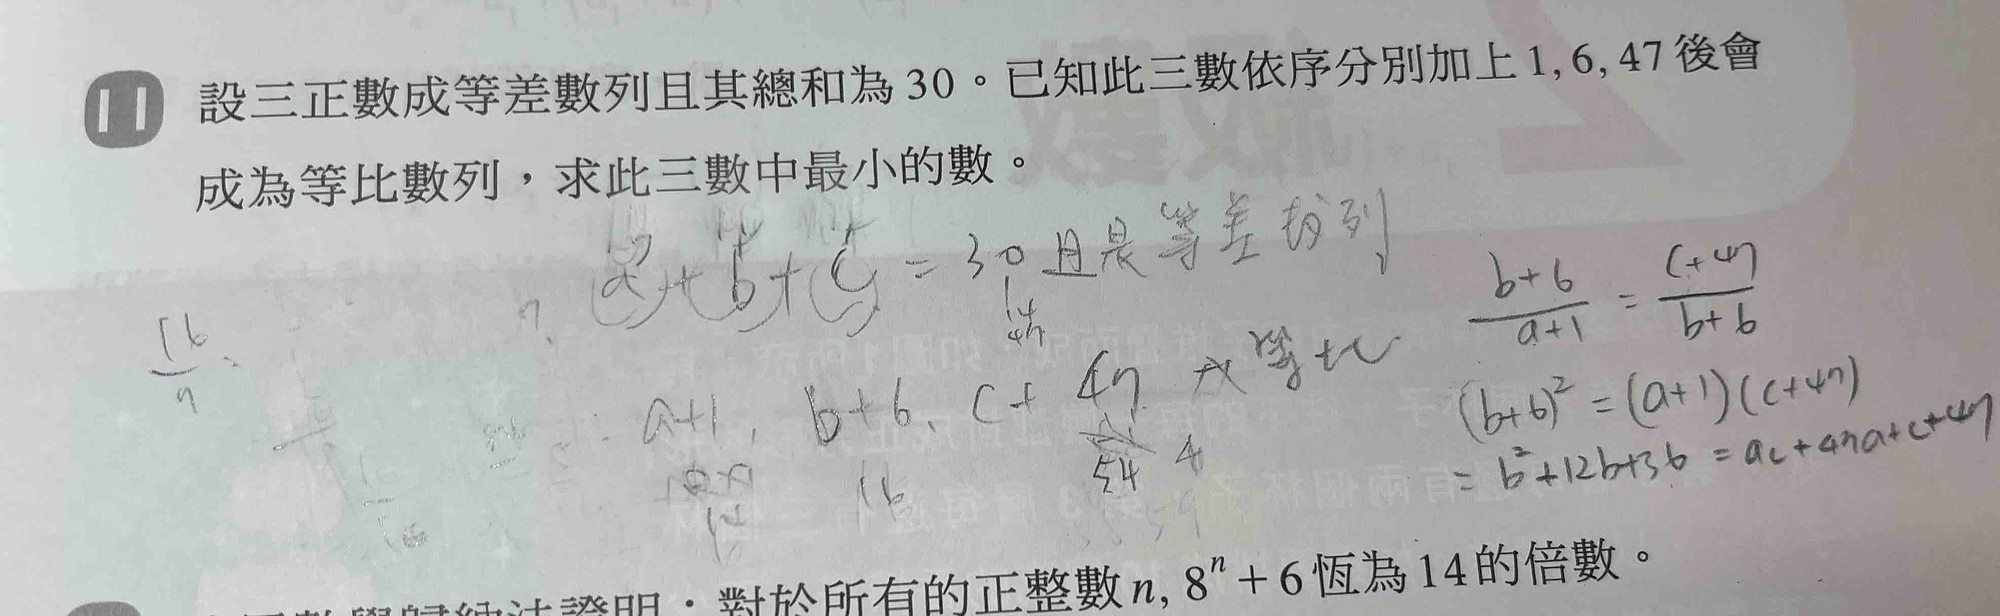 11 設三正數成等差數列且其總和為 30。已知此三數依序分別加上 1, 6, 47 後會
成為等比數列，求此三數中最小的數。
a+b+c = 30 且是等差数列
a+1, b+6, c+47 成等比
16
54 4
16/n
(b+6)/(a+1) = (c+47)/(b+6)
(b+6)² = (a+1)(c+47)
= b²+12b+36 = ac+47a+c+47
對於所有的正整數 n, 8ⁿ + 6 恆為 14 的倍數。